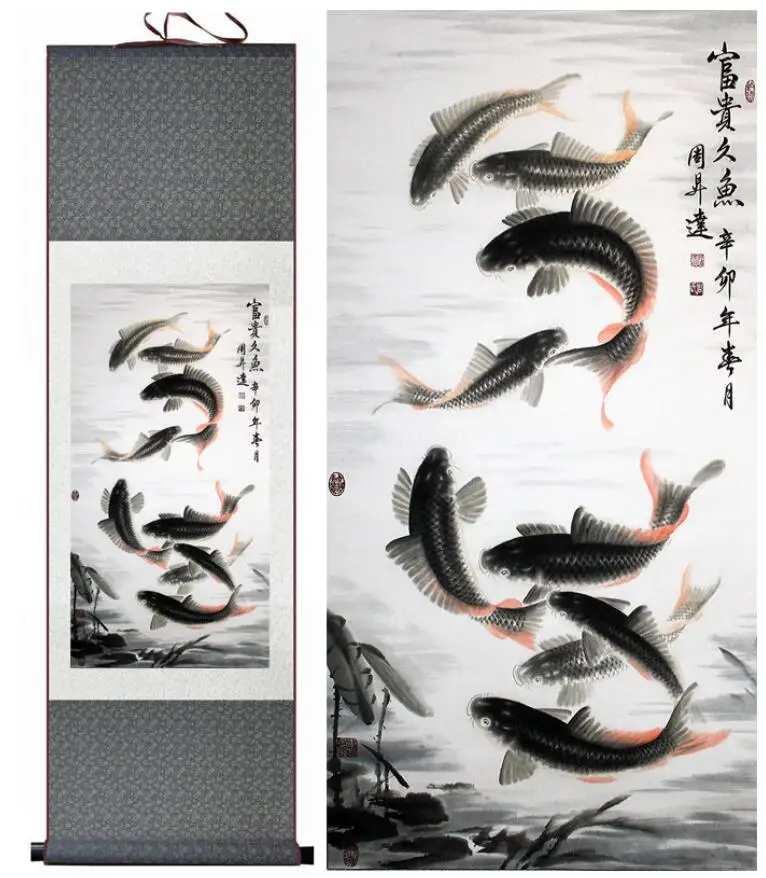 富貴久魚
辛卯年春月
周昇達
富貴久魚
辛卯年春月
周昇達